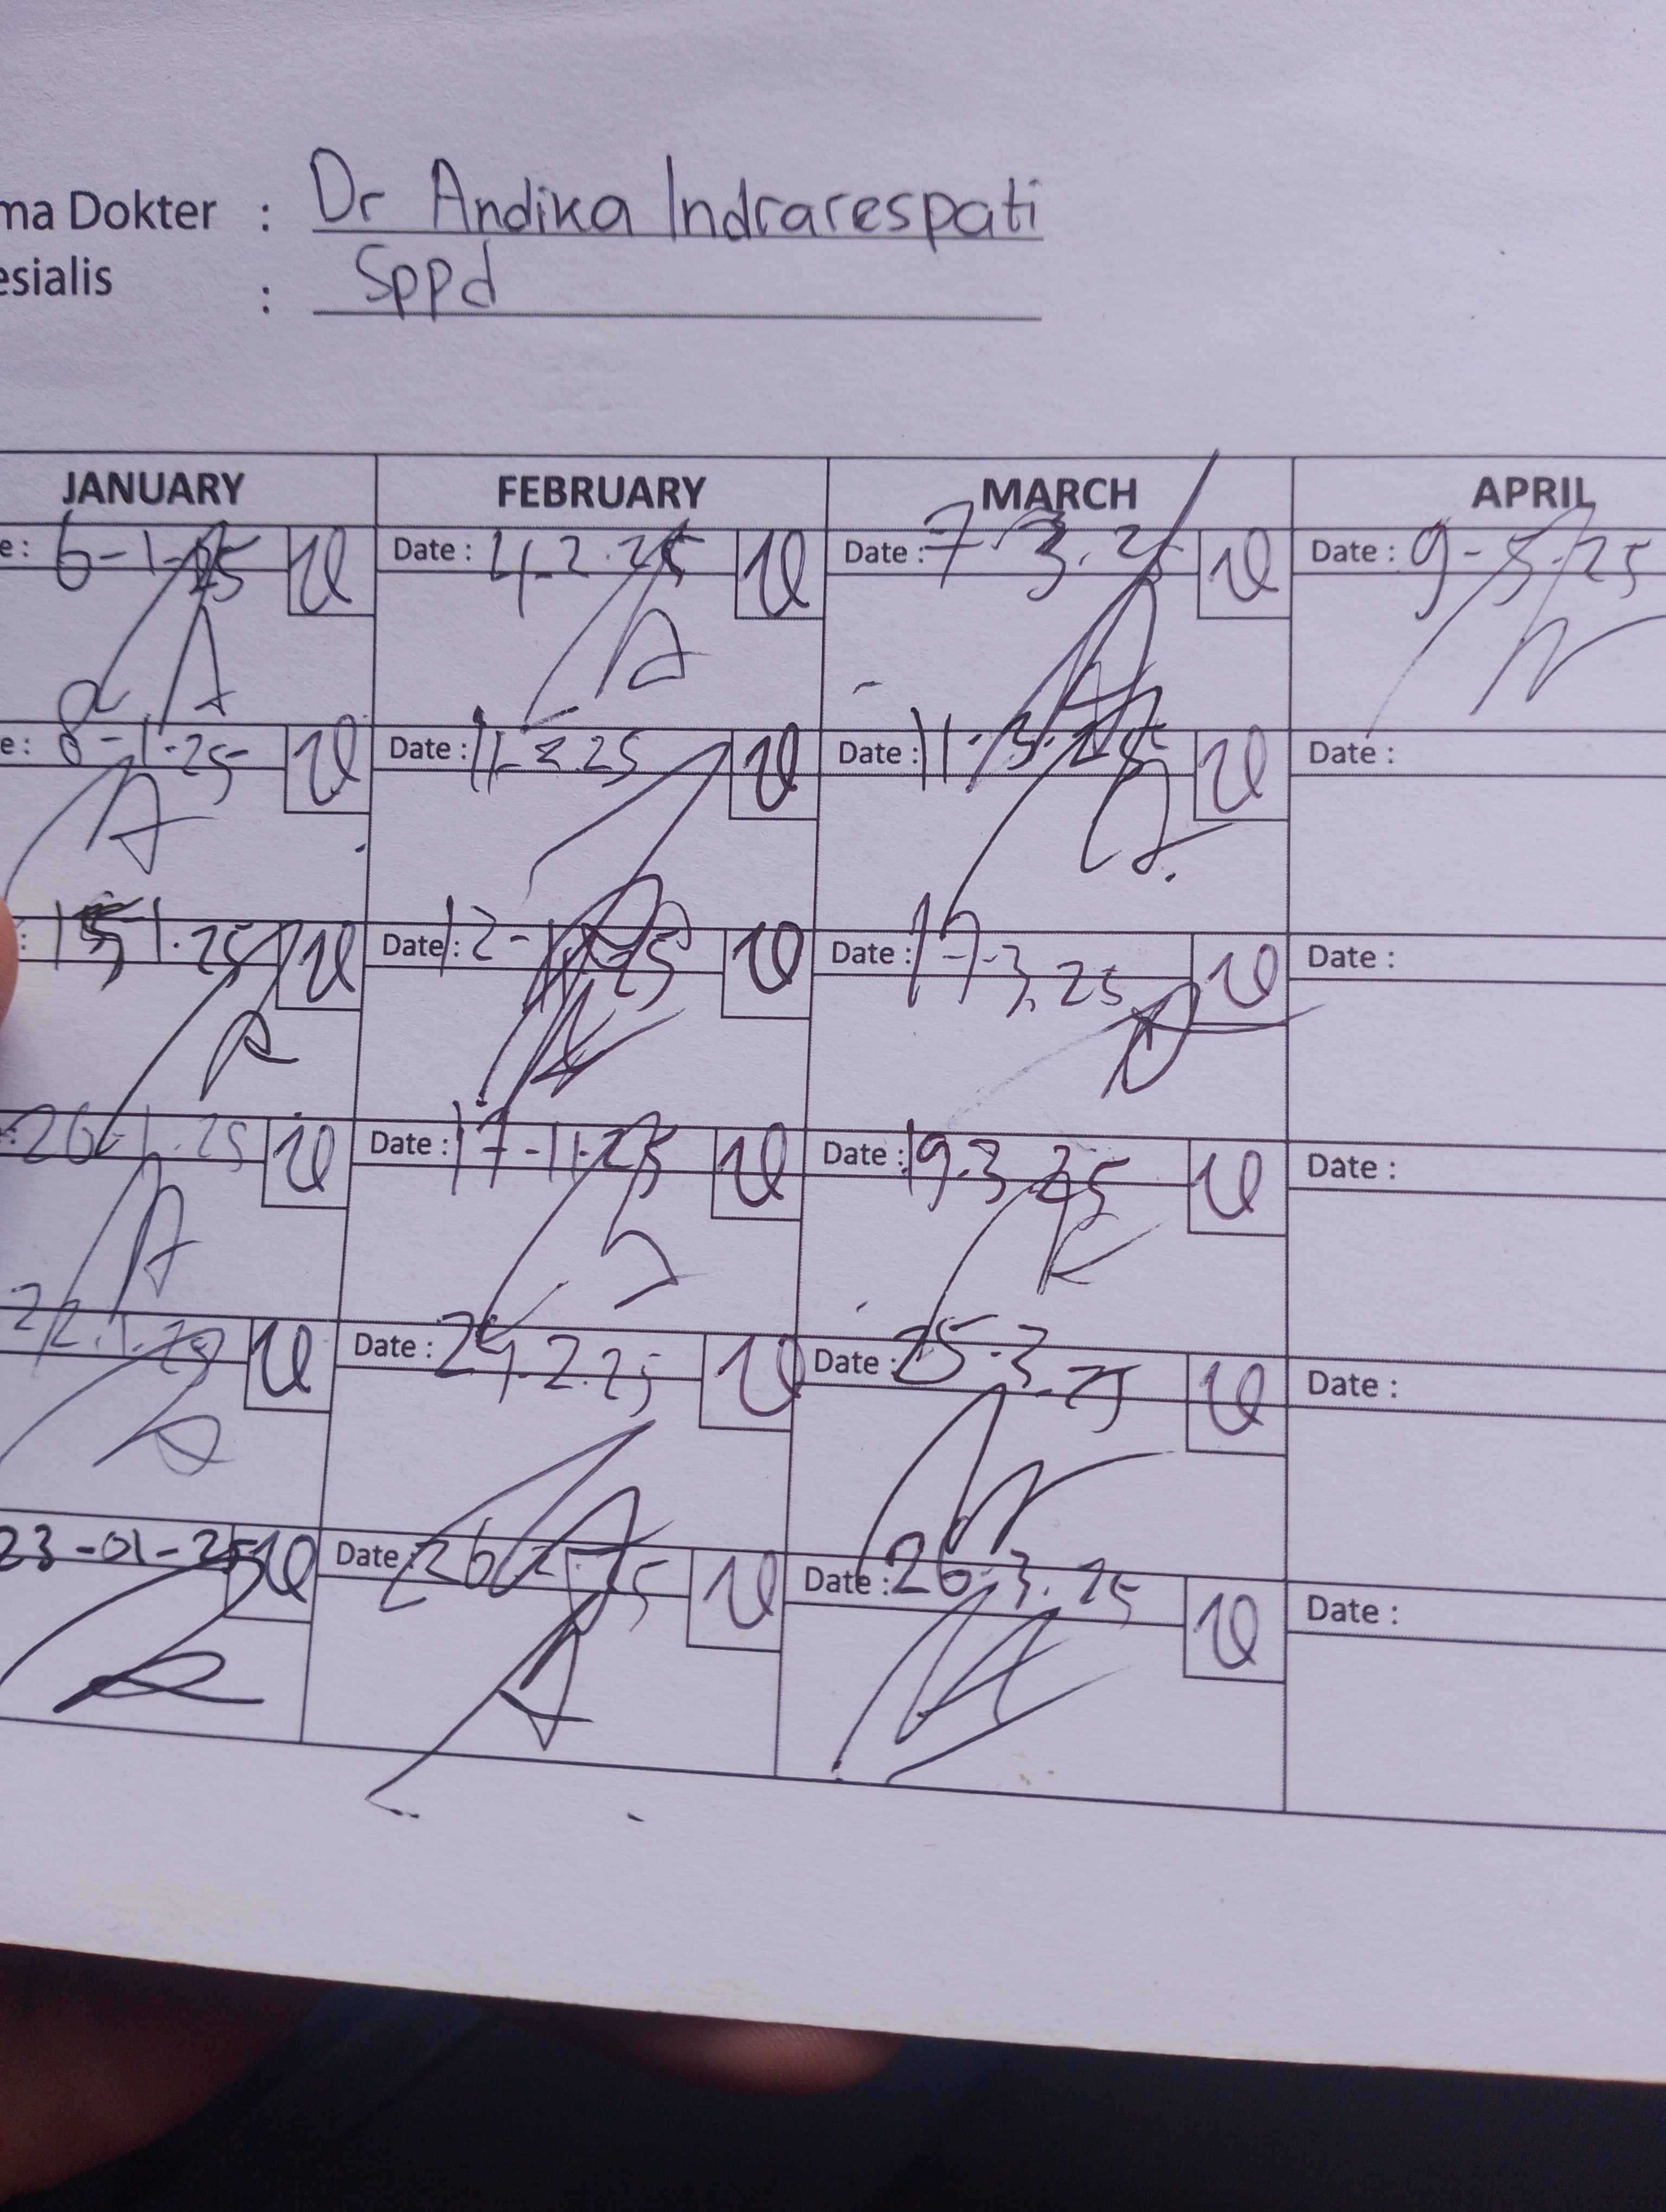 ma Dokter : Dr Andika Indrarespati
esialis : Sppd
JANUARY FEBRUARY MARCH APRIL
e: 6-1-25 Date : 4.2.25 Date : 7-3.25 Date : 9-5-25
e: 8-1-25 Date : 11-2.25 Date : 11-3-25 Date :
: 15-1.25 Date : 12- Date : 17-3.25 Date :
20-1.25 Date : 17-11-25 Date : 19.3.25 Date :
22.1.25 Date : 24.2.25 Date : 25.3.25 Date :
23-01-25 Date : 26.2.25 Date : 26.3.25 Date :